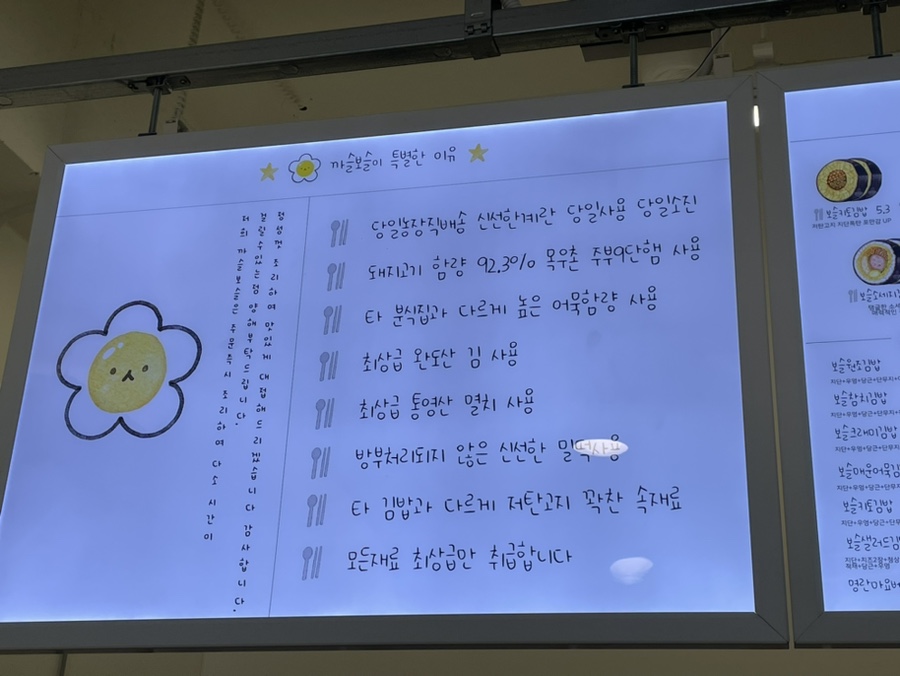 까슬보슬이 특별한 이유
당일농장직배송 신선한계란 당일사용 당일소진
돼지고기 함량 92.3% 목우촌 주부9단햄 사용
타 분식집과 다르게 높은 어묵함량 사용
최상급 완도산 김 사용
최상급 통영산 멸치 사용
방부처리되지 않은 신선한 밀떡사용
타 김밥과 다르게 저탄고지 꽉찬 속재료
모든재료 최상급만 취급합니다
저희 까슬보슬은 주문즉시 조리하여 다소 시간이
걸릴수있는점 양해부탁드립니다.
정성껏 조리하여 맛있게 대접해드리겠습니다 감사합니다.
보슬키토김밥 5.3
저탄고지 지단폭탄 포만감 UP
보슬소세지
보슬원조김밥
지단+우엉+당근+단무지
보슬참치김밥
지단+우엉+당근+단무지
보슬크래미김밥
지단+우엉+당근+단무지
보슬매운어묵김
지단+우엉+당근+단무지
보슬키토김밥
지단+우엉+당근+단무
보슬샐러드김
명란마요